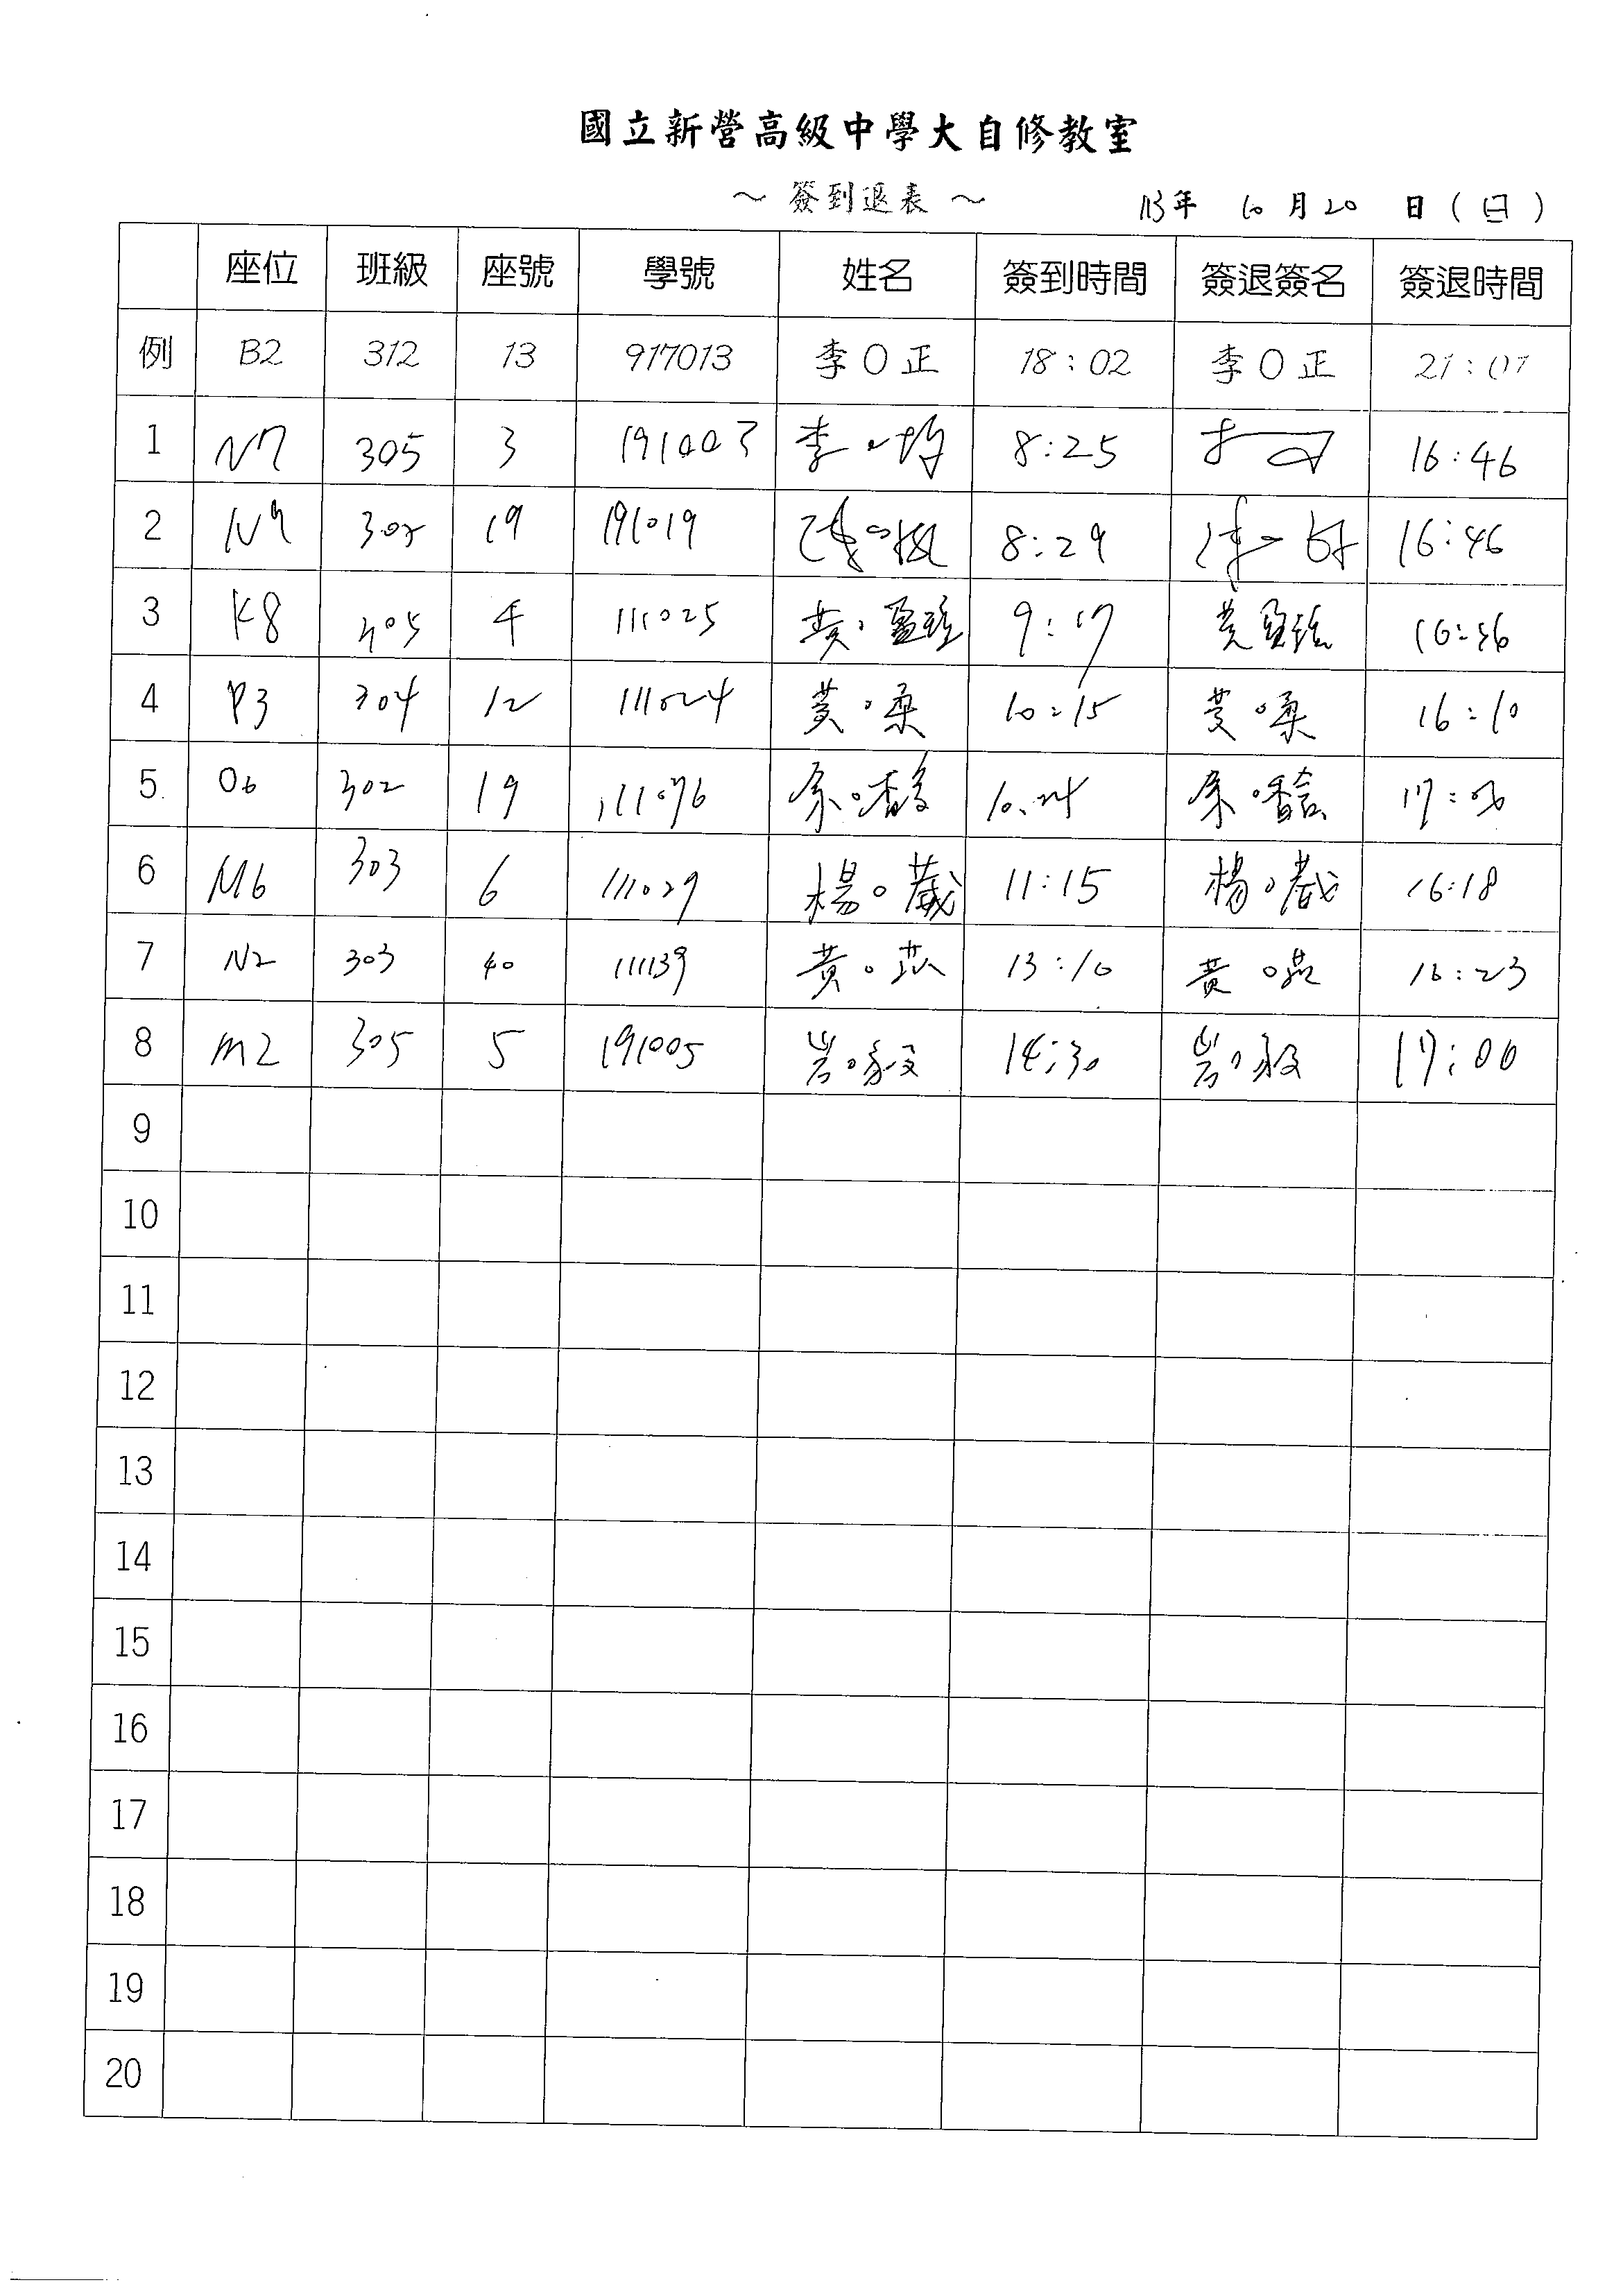 國立新營高級中學大自修教室
～ 簽到退表 ～ 113年 10月20 日(日)
座位 班級 座號 學號 姓名 簽到時間 簽退簽名 簽退時間
例 B2 312 13 917013 李O正 18:02 李O正 21:01
1 N7 305 3 191003 李 8:25 16:46
2 19 191019 8:29 16:46
3 K8 305 4 111025 黃 盈 9:17 黃盈
4 P3 304 12 111024 黃。柔 10:15 黃。柔 16:10
5 06 302 19 111076 余。馨 余。馨 17:06
6 M6 303 6 111029 楊。葳 11:15 楊。葳 16:18
7 N2 303 40 111139 黃。 13:10 黃。 16:23
8 M2 305 5 191005 岩。毅 14:30 岩。毅 17:00
9
10
11
12
13
14
15
16
17
18
19
20